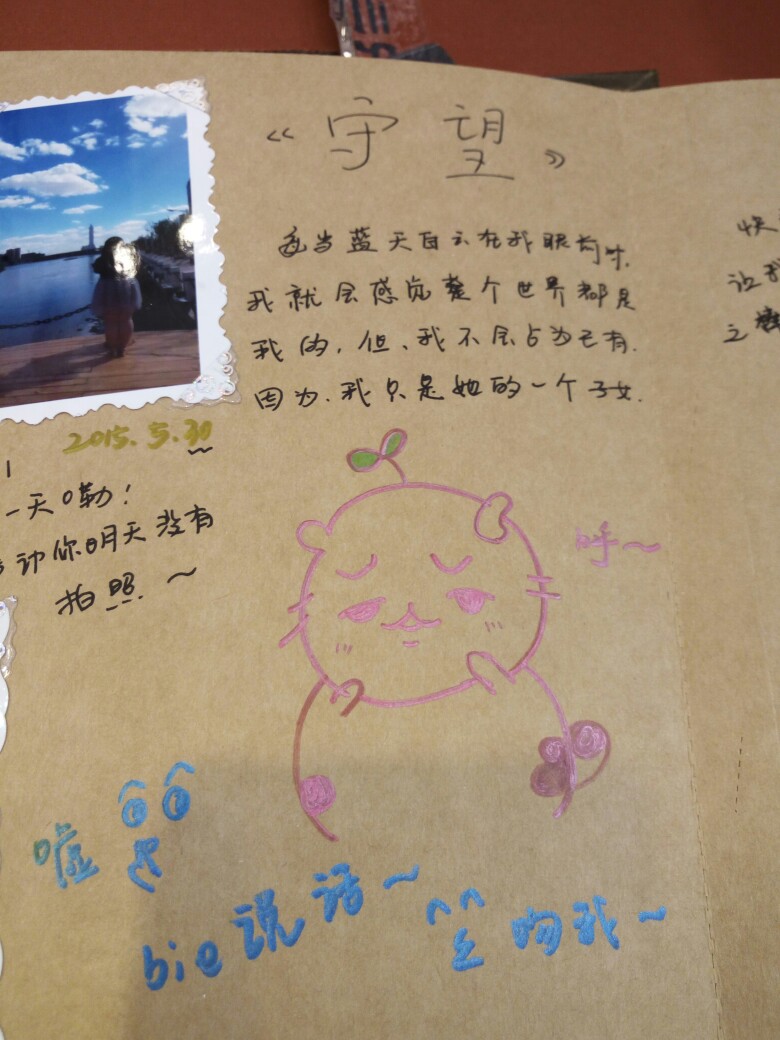 《守望》
每当蓝天白云在我眼前时,
我就会感觉整个世界都是
我的,但、我不会占为己有.
因为.我只是她的一个子女.
快
让我
之
2015.5.30
一天0勒!
动你明天没有
拍照~
呼~
嘘
bie说话~
吻我~